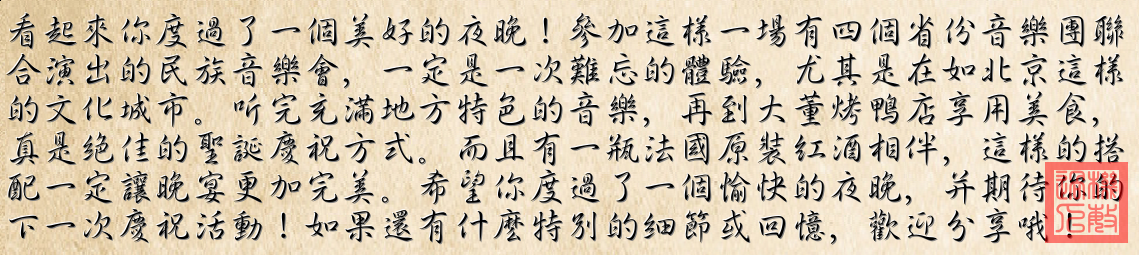 看起來你度過了一個美好的夜晚！參加這樣一場有四個省份音樂團聯
合演出的民族音樂會，一定是一次難忘的體驗，尤其是在如北京這樣
的文化城市。听完充滿地方特色的音樂，再到大董烤鴨店享用美食，
真是絕佳的聖誕慶祝方式。而且有一瓶法國原裝紅酒相伴，這樣的搭
配一定讓晚宴更加完美。希望你度過了一個愉快的夜晚，并期待你的
下一次慶祝活動！如果還有什麼特別的細節或回憶，歡迎分享哦！